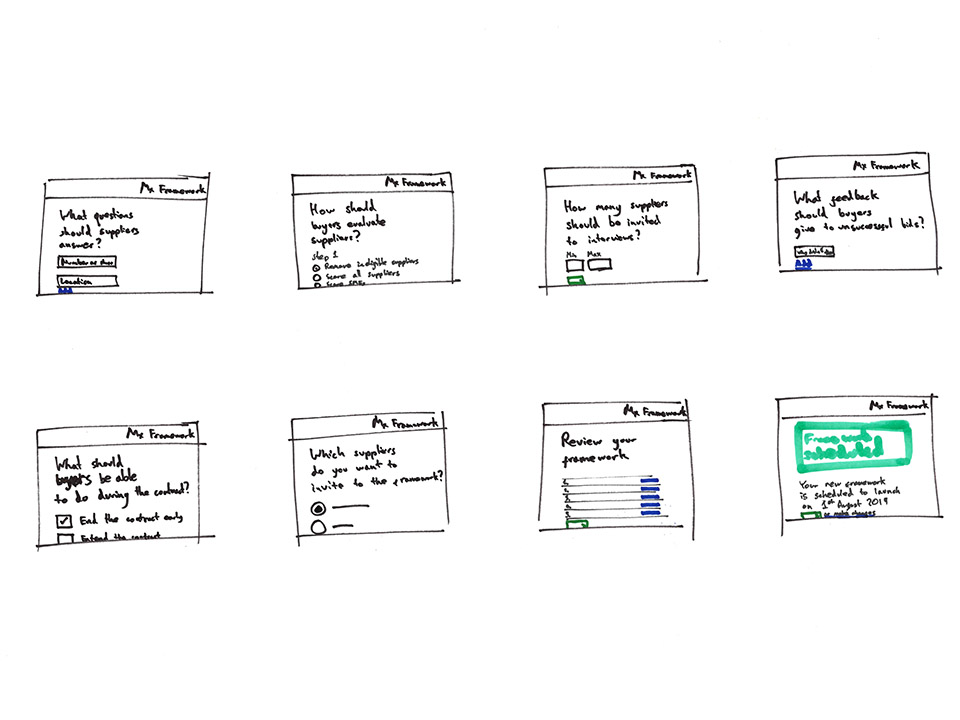 Mx Framework
What questions
should suppliers
answer?
Location
Mx Framework
How should
buyers evaluate
suppliers?
Step 1
Remove ineligible suppliers
Score all suppliers
Score SMEs
Mx Framework
How many suppliers
should be invited
to interviews?
Min Max
Mx Framework
What feedback
should buyers
give to unsuccessful bids?
Mx Framework
What should
buyers be able
to do during the contract?
End the contract early
Extend the contract
Mx Framework
Which suppliers
do you want to
invite to the framework?
Mx Framework
Review your
framework
Mx Framework
Framework
scheduled
Your new framework
is scheduled to launch
on 1st August 2019
or make changes